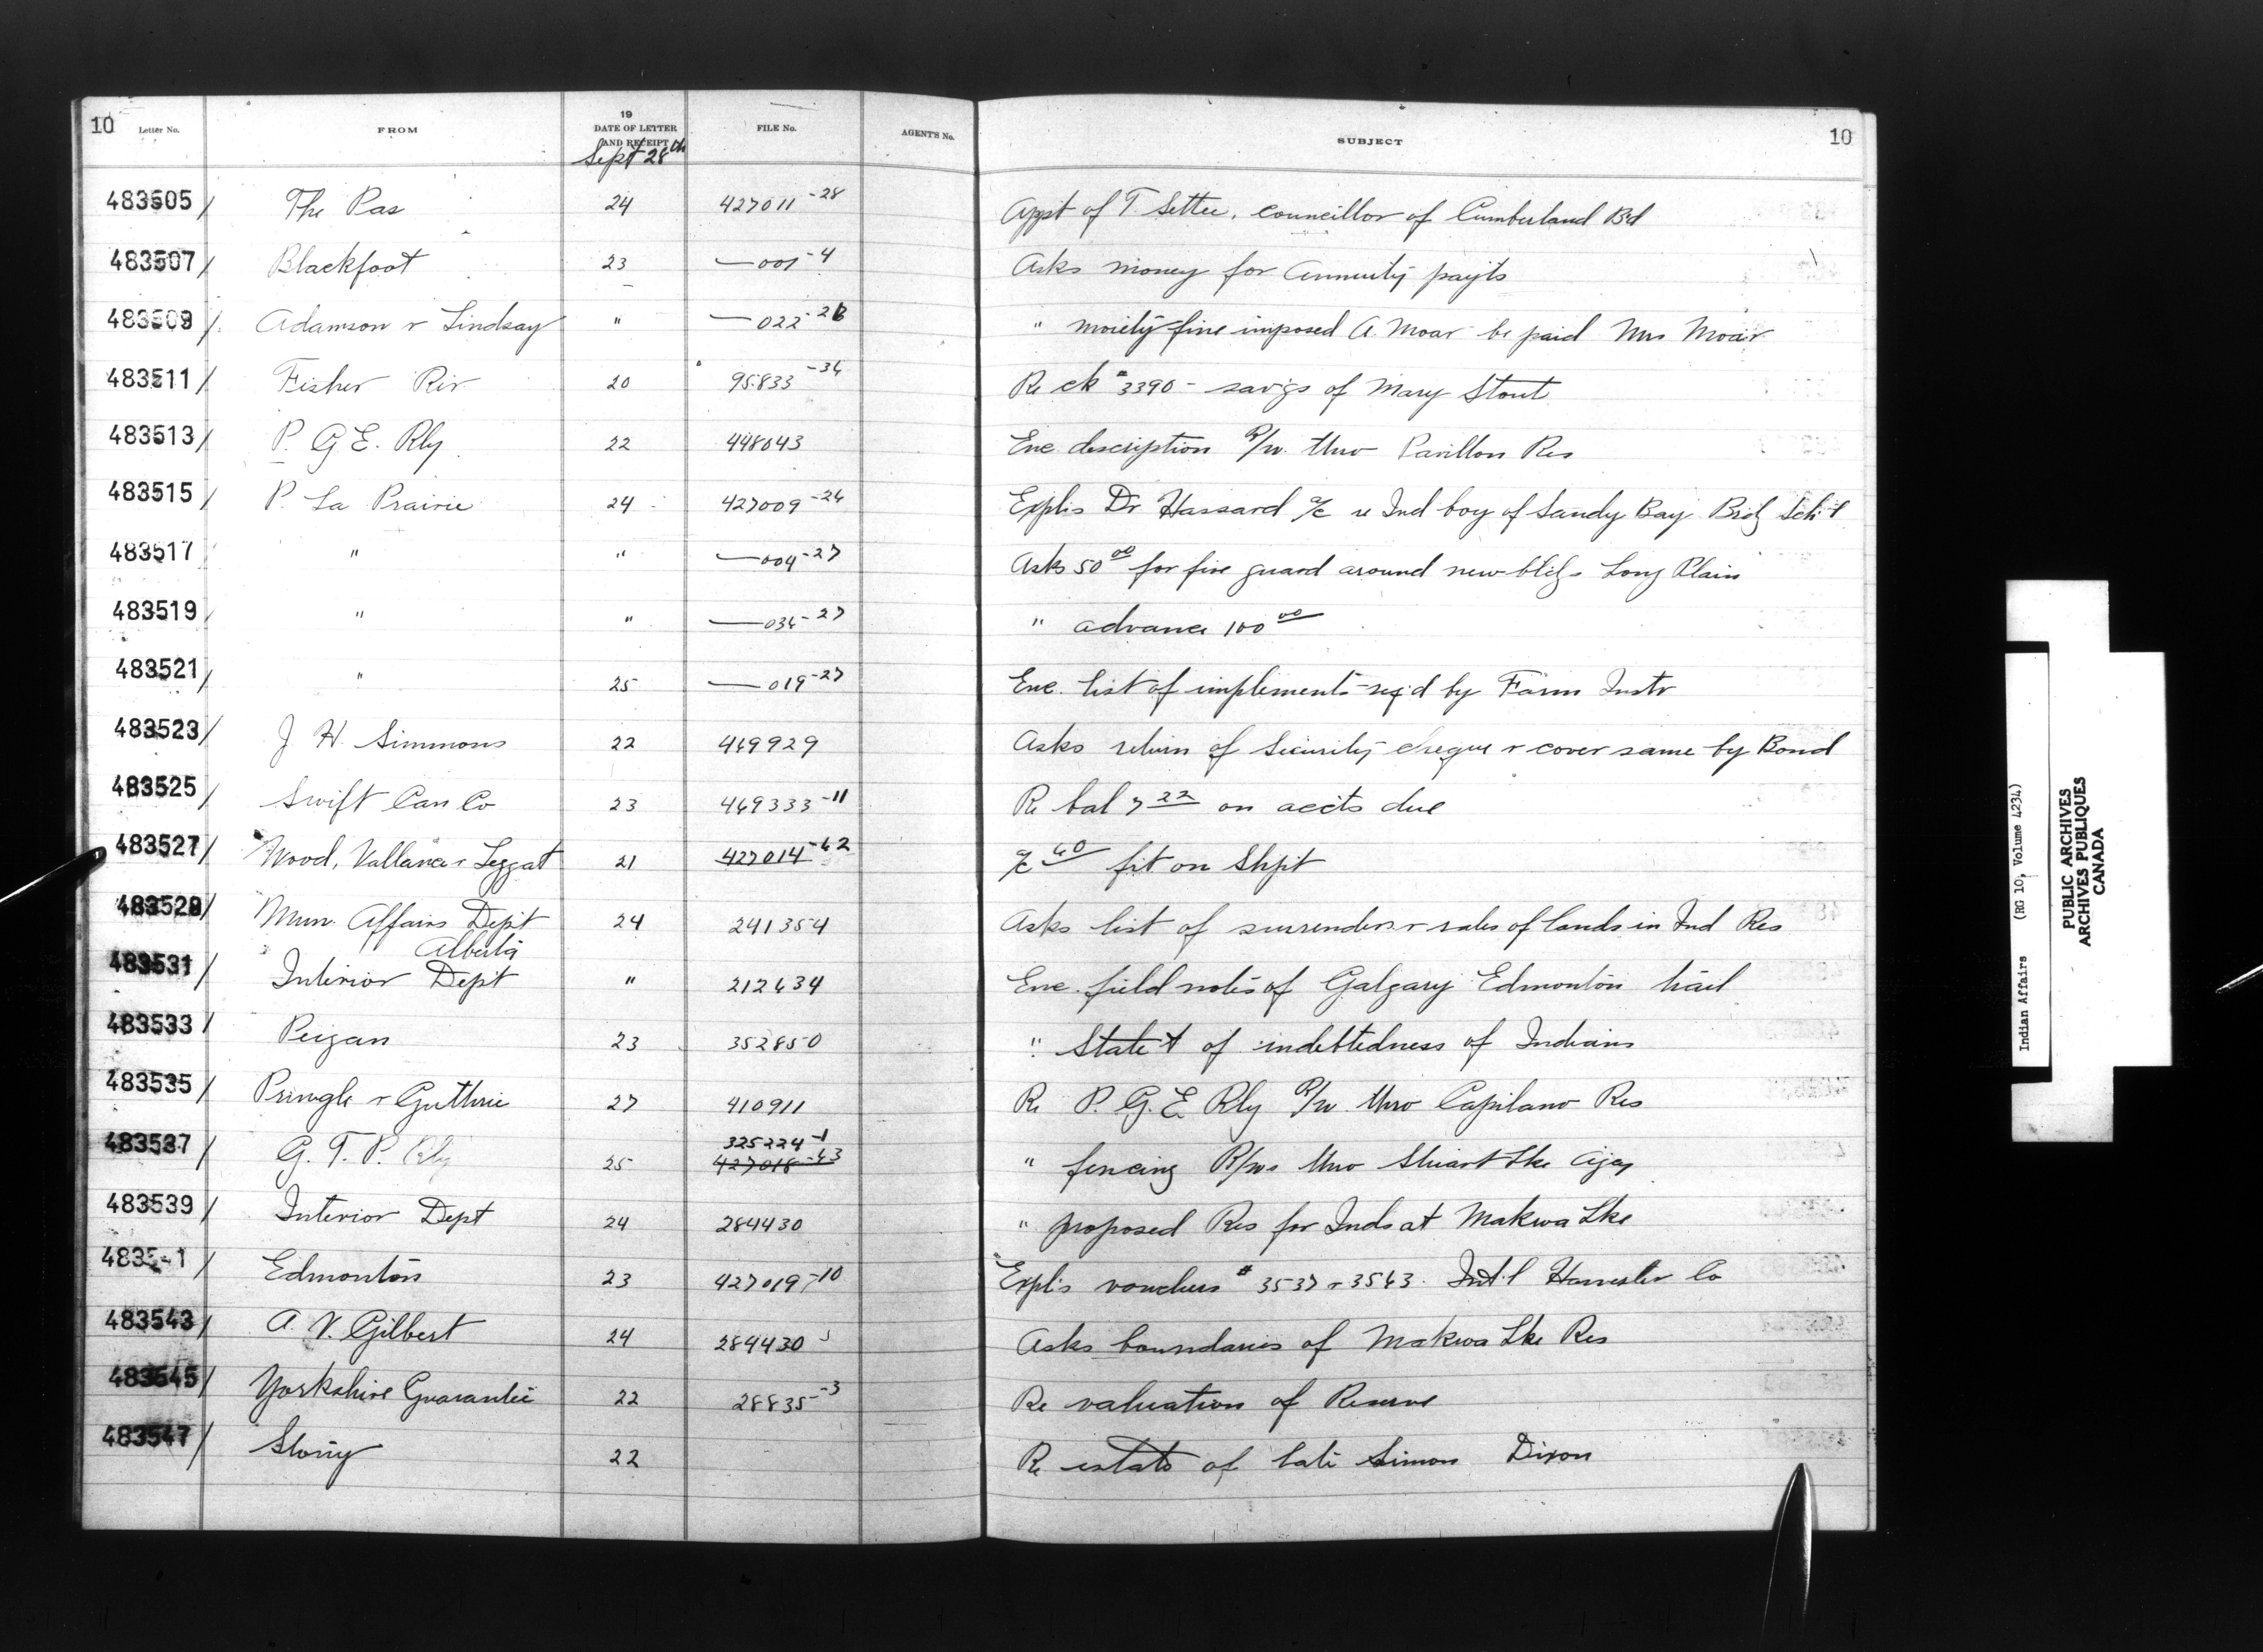 10 Letter No. FROM 19 DATE OF LETTER AND RECEIPT FILE No. AGENT'S No. SUBJECT 10
Sept 28th
483505/ The Pas 24 427011-28 Appt of T. Settee, councillor of Cumberland Bd
483507/ Blackfoot 23 —001-4 Asks money for Annuity payts
483509/ Adamson & Lindsay " —022-28 " moiety fine imposed A. Moar be paid Mrs Moar
483511/ Fisher Riv 20 95833-34 Re ck #3390 - savgs of Mary Stout
483513/ P. G. E. Rly 22 448043 Enc description R/w thro Pavillon Res
483515/ P. La Prairie 24 427009-24 Expl's Dr Hassard a/c re Ind boy of Sandy Bay Brdg Sch'l
483517/ " " —004-27 Asks 50 00 for fire guard around new bldgs Long Plain
483519/ " " —034-27 " advance 100 00
483521/ " 25 —019-27 Enc. list of implements req'd by Farm Instr
483523/ J. H. Simmons 22 469929 Asks return of Security cheque & cover same by Bond
483525/ Swift Can Co 23 469333-11 Re bal 7 22 on accts due
483527/ Wood, Vallance & Leggat 21 427014-42 a/c 60 frt on Shpt
483529/ Mun. Affairs Dep't 24 241354 Asks list of surrenders & sales of lands in Ind Res
Alberta
483531/ Interior Dep't " 212634 Enc. field notes of Calgary Edmonton trail
483533/ Peigan 23 352850 " State't of indebtedness of Indians
483535/ Pringle & Guthrie 27 410911 Re P. G. E. Rly R/w thro Capilano Res
325224-1
483537/ G. T. P. Rly 25 427018-43 " fencing R/ws thro Stuart Lke Agcy
483539/ Interior Dept 24 284430 " proposed Res for Inds at Makwa Lke
483541/ Edmonton 23 427019-10 Expl's vouchers # 3537 & 3543. Int'l Harvester Co
483543/ A. V. Gilbert 24 284430 Asks boundaries of Makwa Lke Res
483545/ Yorkshire Guarantee 22 28835-3 Re valuation of Reserve
483547/ Stony 22 Re estate of late Simon Dixon
Indian Affairs (RG 10, Volume 4234)
PUBLIC ARCHIVES
ARCHIVES PUBLIQUES
CANADA